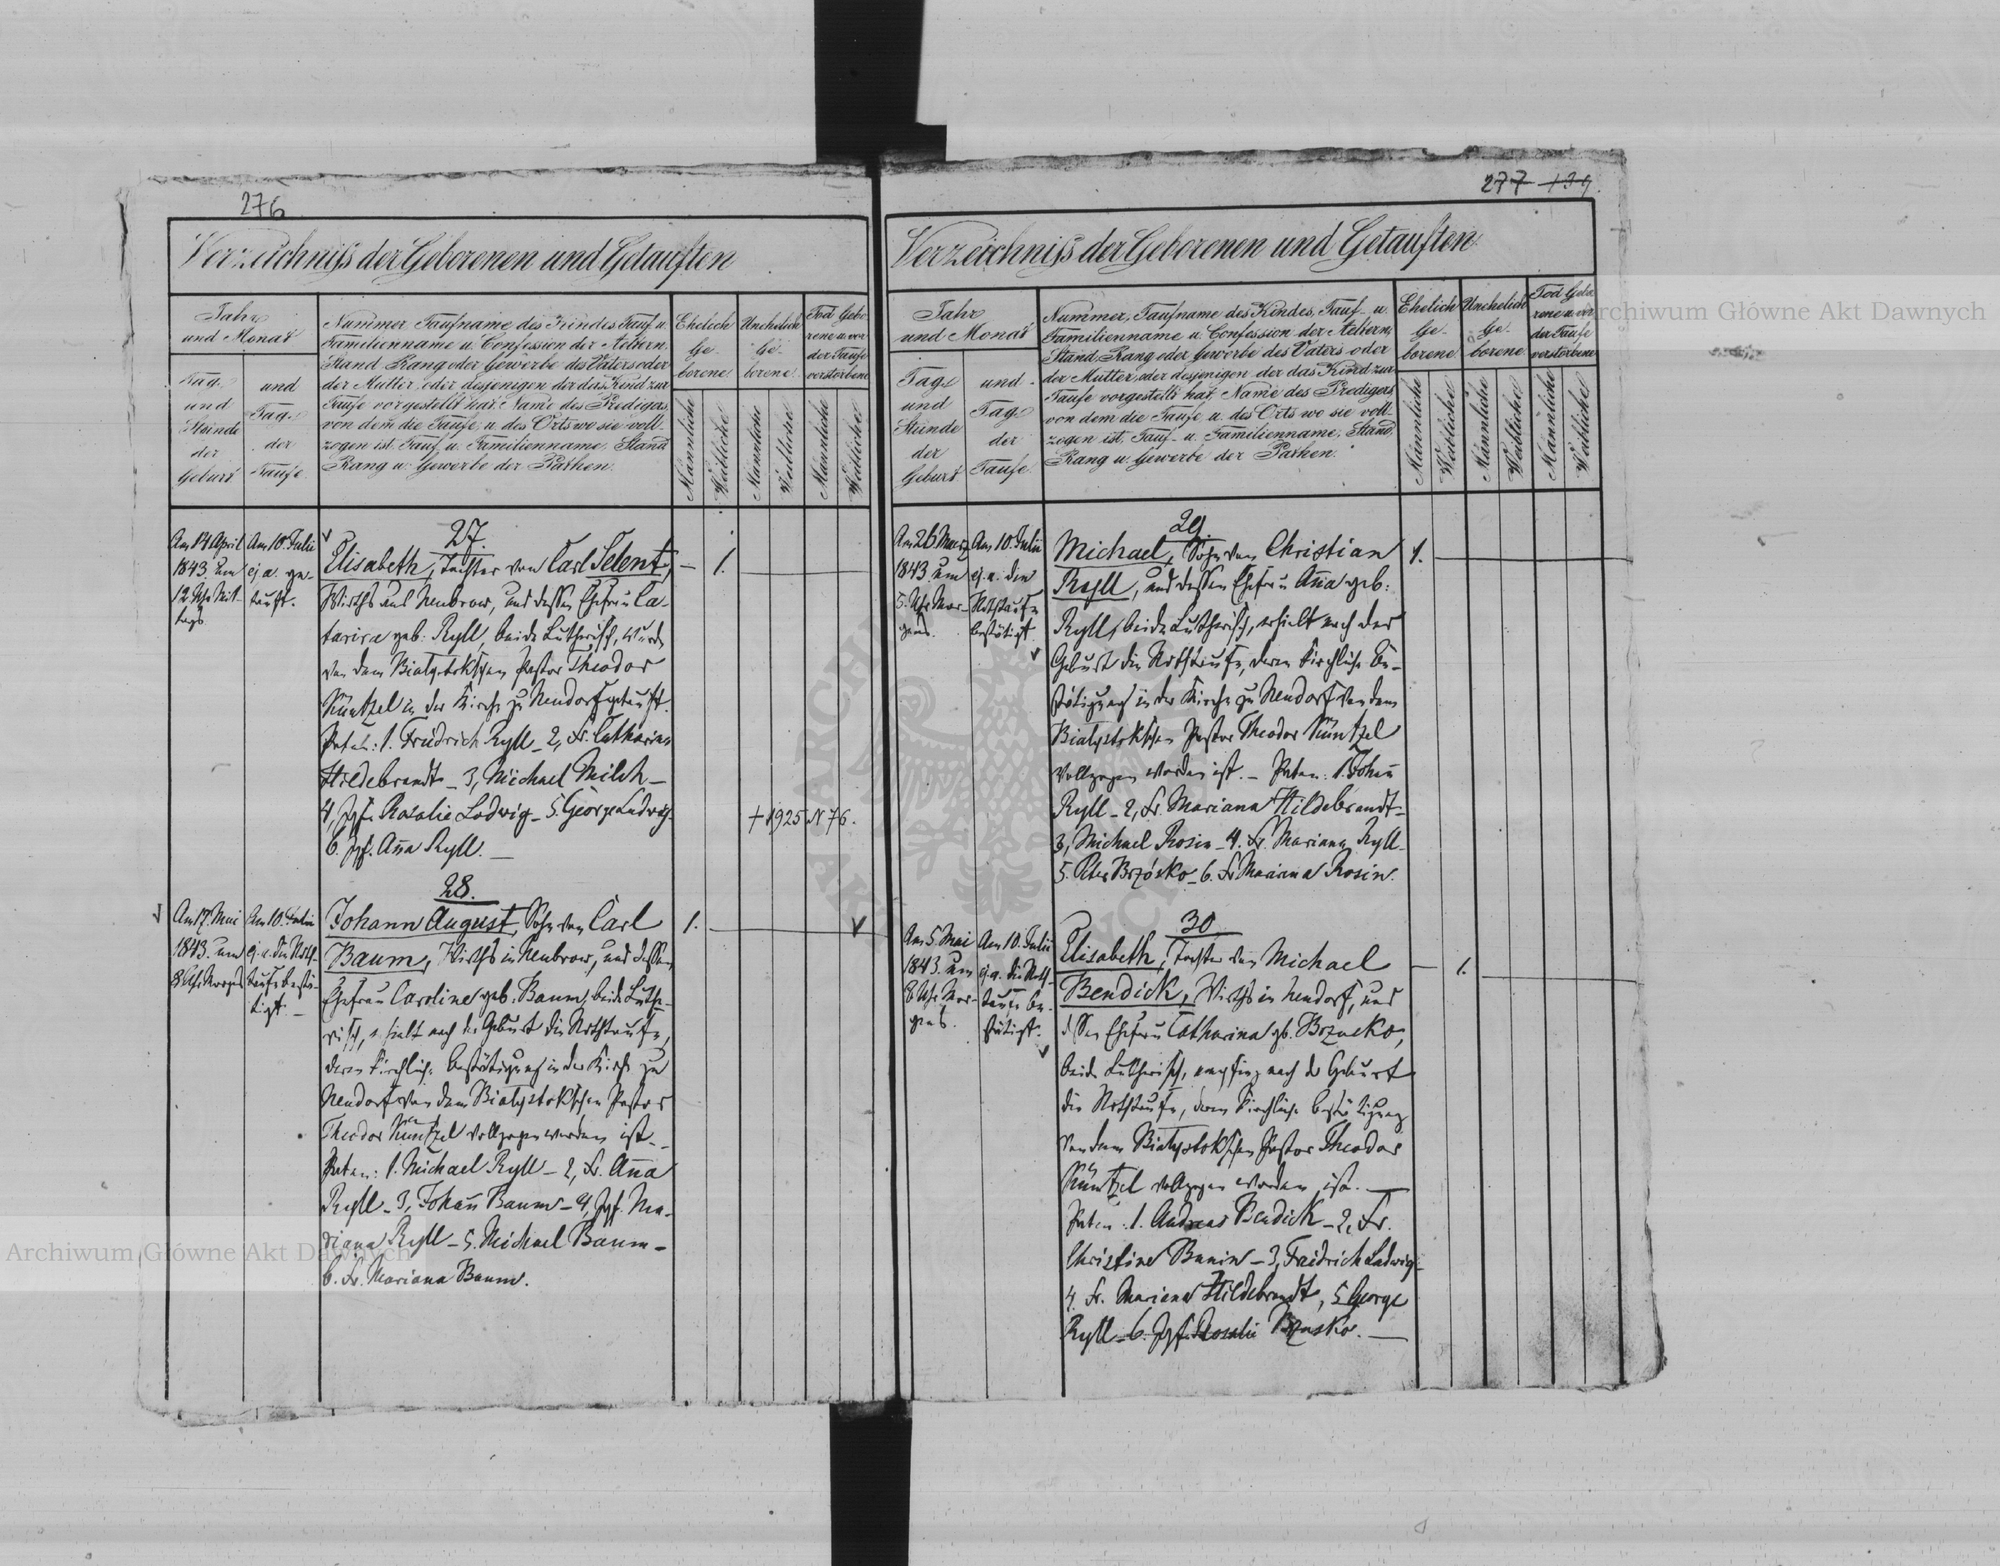 276
Verzeichniss der Geborenen und Getauften
Jahr
und Monat
Tag
und
Stunde
der
Geburt
und
Tag
der
Taufe
Nummer, Taufname des Kindes, Tauf- u.
Familienname u. Confession der Aeltern,
Stand, Rang oder Gewerbe des Vaters oder
der Mutter, oder desjenigen der das Kind zur
Taufe vorgestellt hat, Name des Predigers,
von dem die Taufe, u. des Orts wo sie voll-
zogen ist. Tauf- u. Familienname, Stand,
Rang u. Gewerbe der Pathen.
Ehelich
Ge-
borene
Unehelich
Ge-
borene
Tod Gebo
rene u. vor
der Taufe
verstorbene
Männliche
Weibliche
Männliche
Weibliche
Männliche
Weibliche
Am 14 April
1843. um
12 Uhr Mit-
tags
Am 10. Julii
ej. a. ge-
tauft.
27.
Elisabeth, Tochter von Carl Selent,
Wirths aus Neubrow, und dessen Ehefrau Ca-
tarina geb. Ryll, beide Lutherisch, wurde
von dem Bialystokschen Pastor Theodor
Küntzel in der Kirche zu Neudorf getauft.
Paten: 1. Friedrich Ryll_ 2, Fr. Catharina
Hildebrandt_ 3, Michael Milch_
4, Jgf. Rosalie Ludwig_ 5. George Ludwig.
6. Jgf. Anna Ryll. _
1.
+ 1925 N 76.
Am 17. Mai
1843. um
8 Uhr Morgens
Am 10. Julii
ej. a. die Noth-
taufe bestä-
tigt. _
28.
Johann August, Sohn von Carl
Baum, Wirths in Neubrow, und dessen
Ehefrau Caroline geb. Baum, beide Luthe-
risch, erhielt nach der Geburt die Nothtaufe,
deren kirchliche Bestätigung in der Kirche zu
Neudorf von dem Bialystokschen Pastor
Theodor Küntzel vollzogen worden ist._
Paten: 1. Michael Ryll_ 2, Fr. Anna
Ryll_ 3, Johann Baum_ 4, Jgf. Ma-
riana Ryll_ 5. Michael Baum_
6. Fr. Mariana Baum.
1.
277 139.
Verzeichniss der Geborenen und Getauften
Jahr
und Monat
Tag
und
Stunde
der
Geburt
und
Tag
der
Taufe
Nummer, Taufname des Kindes, Tauf- u.
Familienname u. Confession der Aeltern,
Stand, Rang oder Gewerbe des Vaters oder
der Mutter, oder desjenigen der das Kind zur
Taufe vorgestellt hat, Name des Predigers,
von dem die Taufe u. des Orts wo sie voll-
zogen ist, Tauf- u. Familienname, Stand,
Rang u. Gewerbe der Pathen.
Ehelich
Ge-
borene
Unehelich
Ge-
borene
Tod Gebo
rene u. vor
der Taufe
verstorbene
Männliche
Weibliche
Männliche
Weibliche
Männliche
Weibliche
Am 26 Maerz
1843. um
5. Uhr Mor-
gens.
Am 10. Julii
ej. a. die
Nothtaufe
bestätigt.
29.
Michael, Sohn von Christian
Ryll, und dessen Ehefrau Anna geb:
Ryll, beide Lutherisch, erhielt nach der
Geburt die Nothtaufe, deren kirchliche Be-
stätigung in der Kirche zu Neudorf von dem
Bialystokschen Pastor Theodor Küntzel
vollzogen worden ist. _ Paten: 1. Johann
Ryll_ 2, Fr. Mariana Hildebrandt_
3, Michael Rosin_ 4. Fr. Mariana Ryll_
5. Peter Brzósko_ 6. Fr. Mariana Rosin.
1.
Am 5. Mai
1843. um
8 Uhr Mor-
gens.
Am 10. Julii
ej. a. die Noth-
taufe be-
stätigt.
30.
Elisabeth, Tochter von Michael
Bendick, Wirths in Neudorf, und
dessen Ehefrau Catharina geb. Brzosko,
beide Lutherisch, empfing nach der Geburt
die Nothtaufe, deren kirchliche Bestätigung
von dem Bialystokschen Pastor Theodor
Küntzel vollzogen worden ist. _
Paten: 1. Andreas Bendick_ 2, Fr.
Christine Bunin_ 3, Friedrich Ludwig_
4. Fr. Mariana Hildebrandt, 5. George
Ryll_ 6. Jgf. Rosalie Brzosko. _
1.
Archiwum Główne Akt Dawnych
Archiwum Główne Akt Dawnych